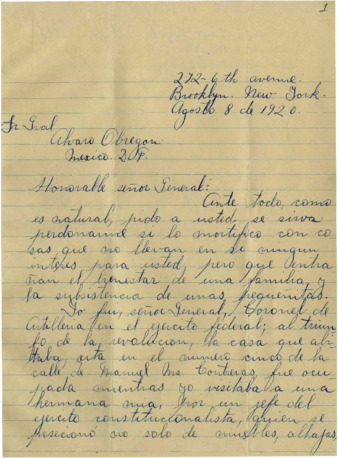 1
272-6th avenue.
Brooklyn. New York.
Agosto 8 de 1920.
Sr Gral
Alvaro Obregon
Mexico. D.F.
Honorable señor General:
Ante todo, como
es natural, pido a usted se sirva
perdonarme si lo mortifico con co
sas que no llevan en si ningun
interes, para usted, pero que entra
ñan el bienestar de una familia, y
la subsistencia de unas pequeñitas.
Yo fui, señor General, Coronel de
Artilleria en el ejercito federal; al triun
fo de la revolucion, la casa que abi
taba esta en el numero cinco de la
calle de Manuel Ma Contreras, fue ocu
pada mientras yo visitaba a una
hermana mia, por un jefe del
ejercito constitucionalista, quien se
posecionó no solo de muebles, alhajas,